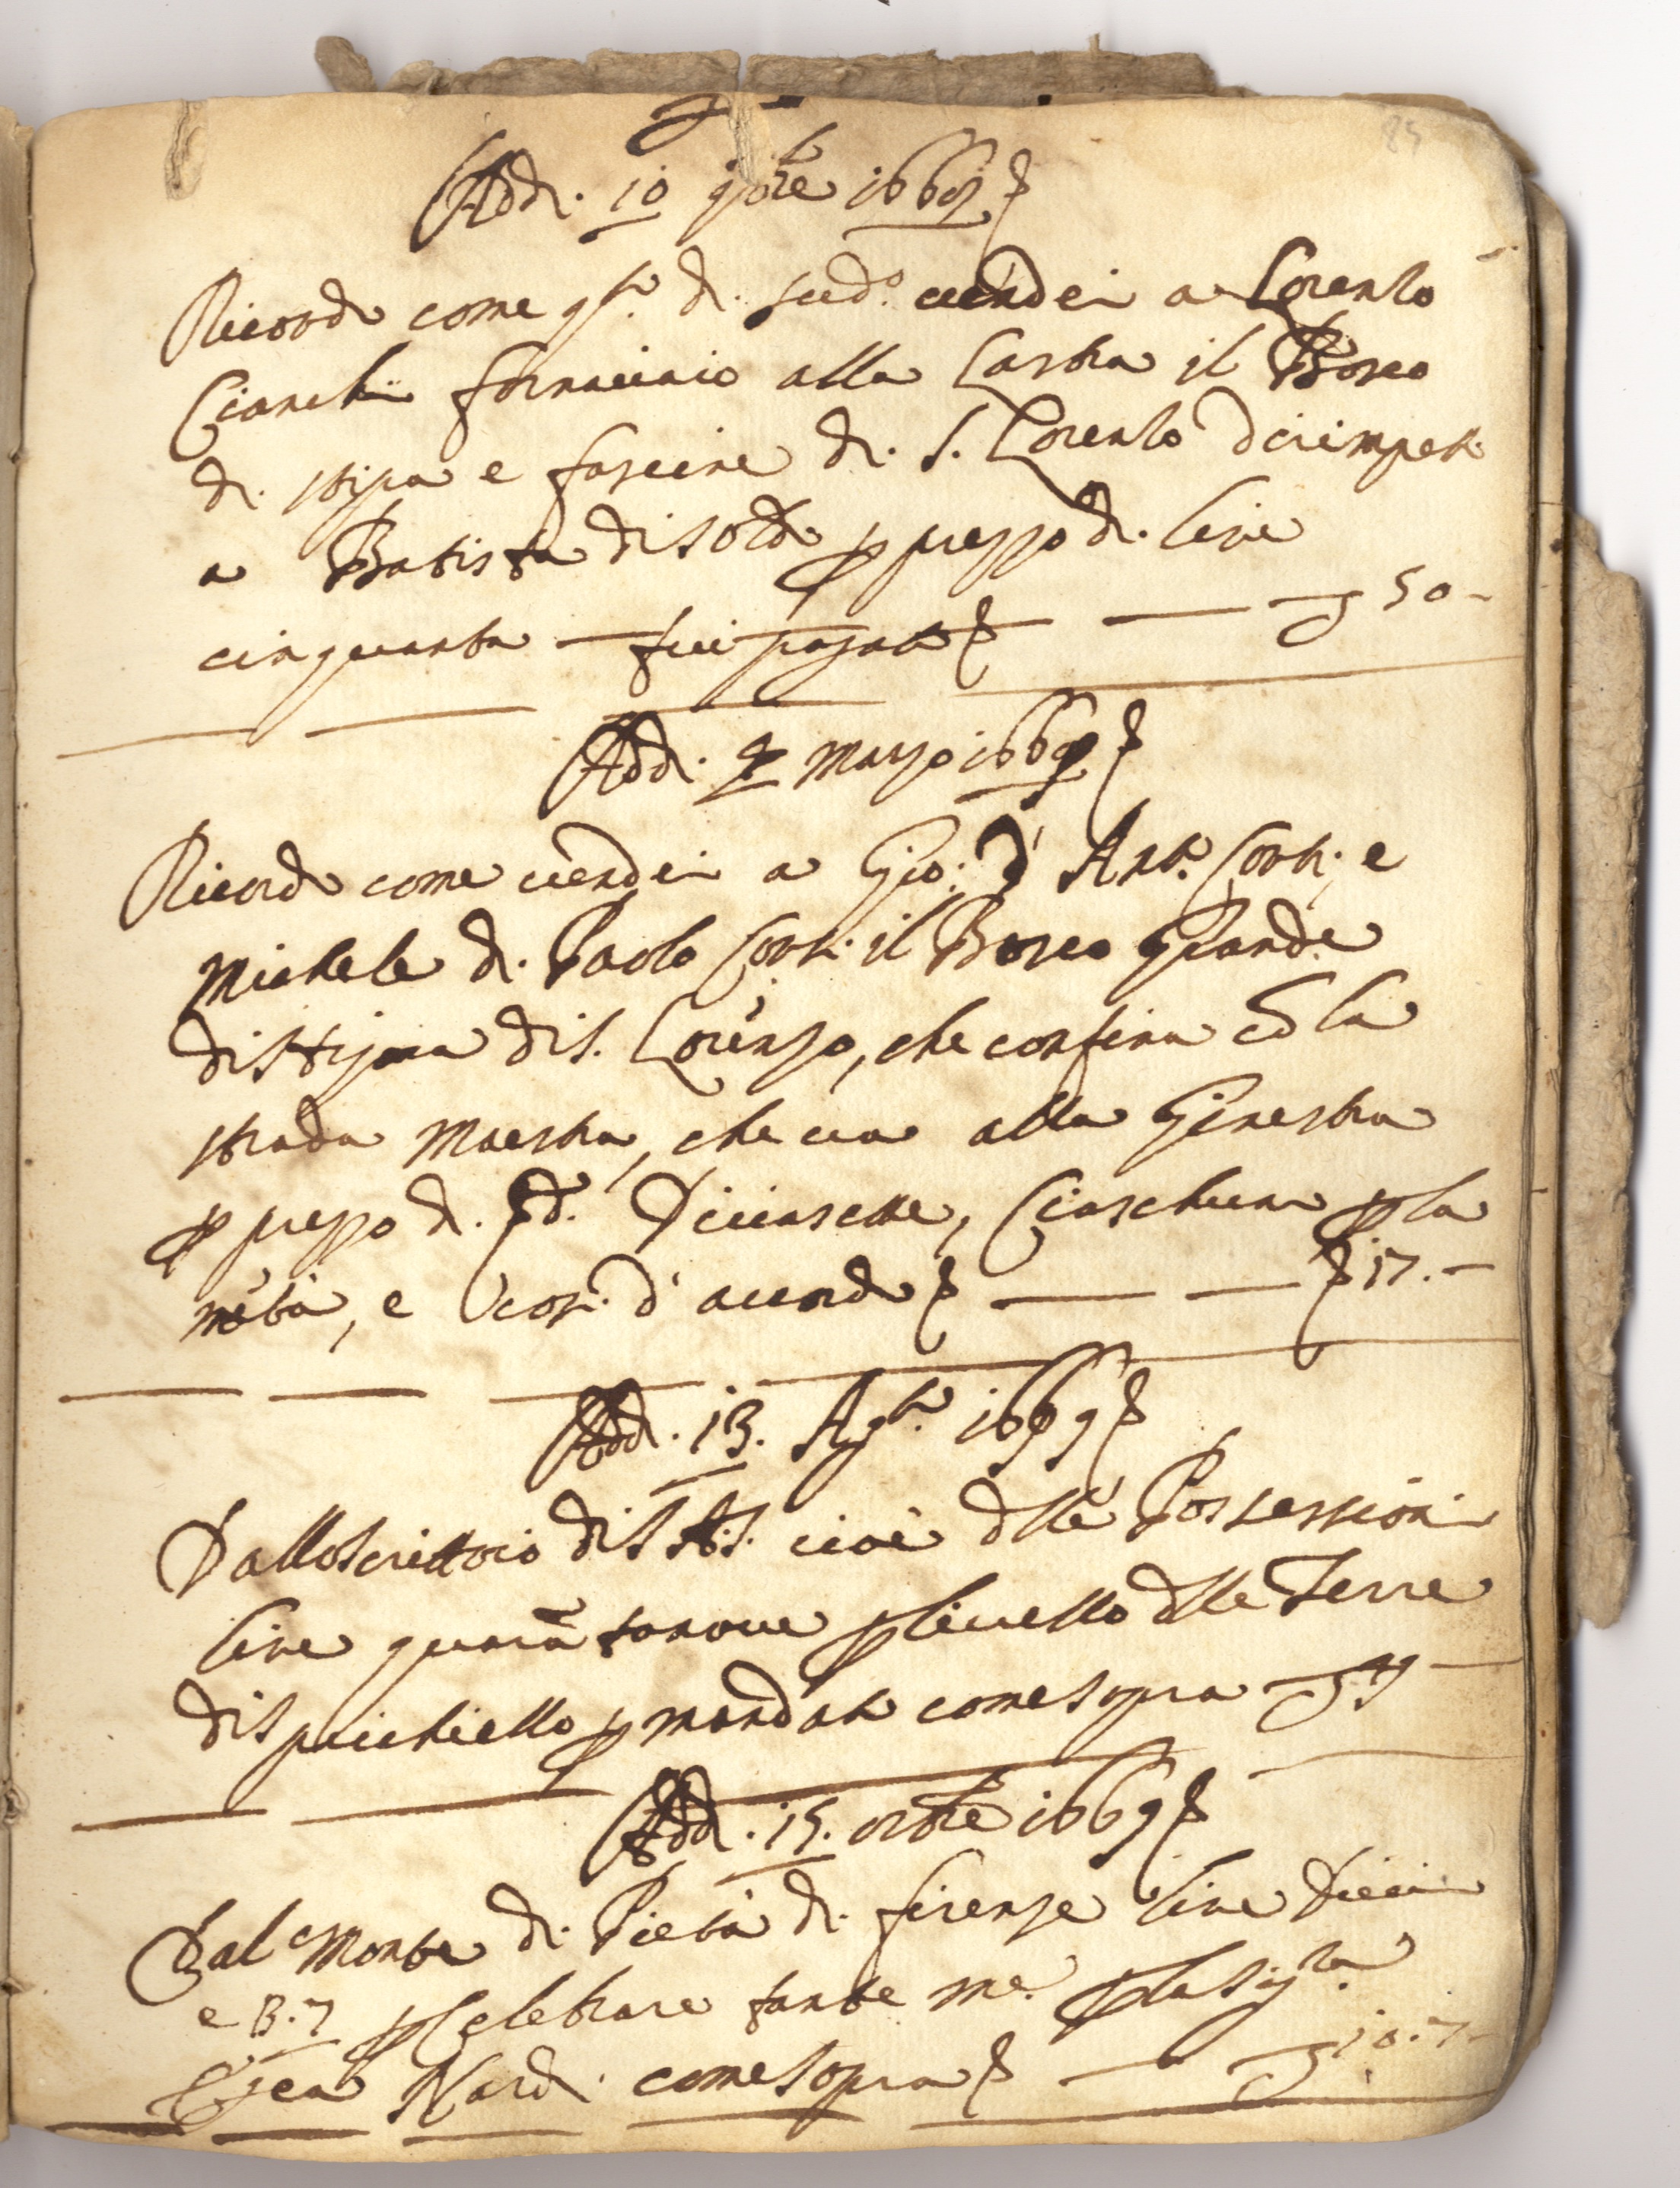 85
Add. 10 9bre 1669
Ricordo come qsto. dì sud.o vendei a Lorenzo
Cianchi fornaciaio alla Lastra il Bosco
di stipa e fascine di S. Lorenzo dirimpetto
a Batista di sotto p prezzo di lire
cinquanta — fui pagato — 50 -
Add. marzo 1669
Ricordo come vendei a Gio: d' Ant.o Corti e
Michele di Paolo Corti il Bosco Grande
di stipa di S. Lorenzo, che confina cō la
strada maestra, che va alla Ginestra
p prezzo di Sd. Diciasette, Ciascheuno p la
metà, e così d' accordo — 17. -
Add. 13. Ag.to 1669
Dallo scrittoio di S. A. S. cioè dlle Possessioni
lire quarātanove p livello dlle Terre
di spicchiello p mandato come sopra 49 —
Add. 15. ottbre 1669
Dal Monte di Pietà di firenze lire dieci
e ß. 7 p Celebrare tante me. p la Sig.ra
Nardi come sopra — 10.7 -